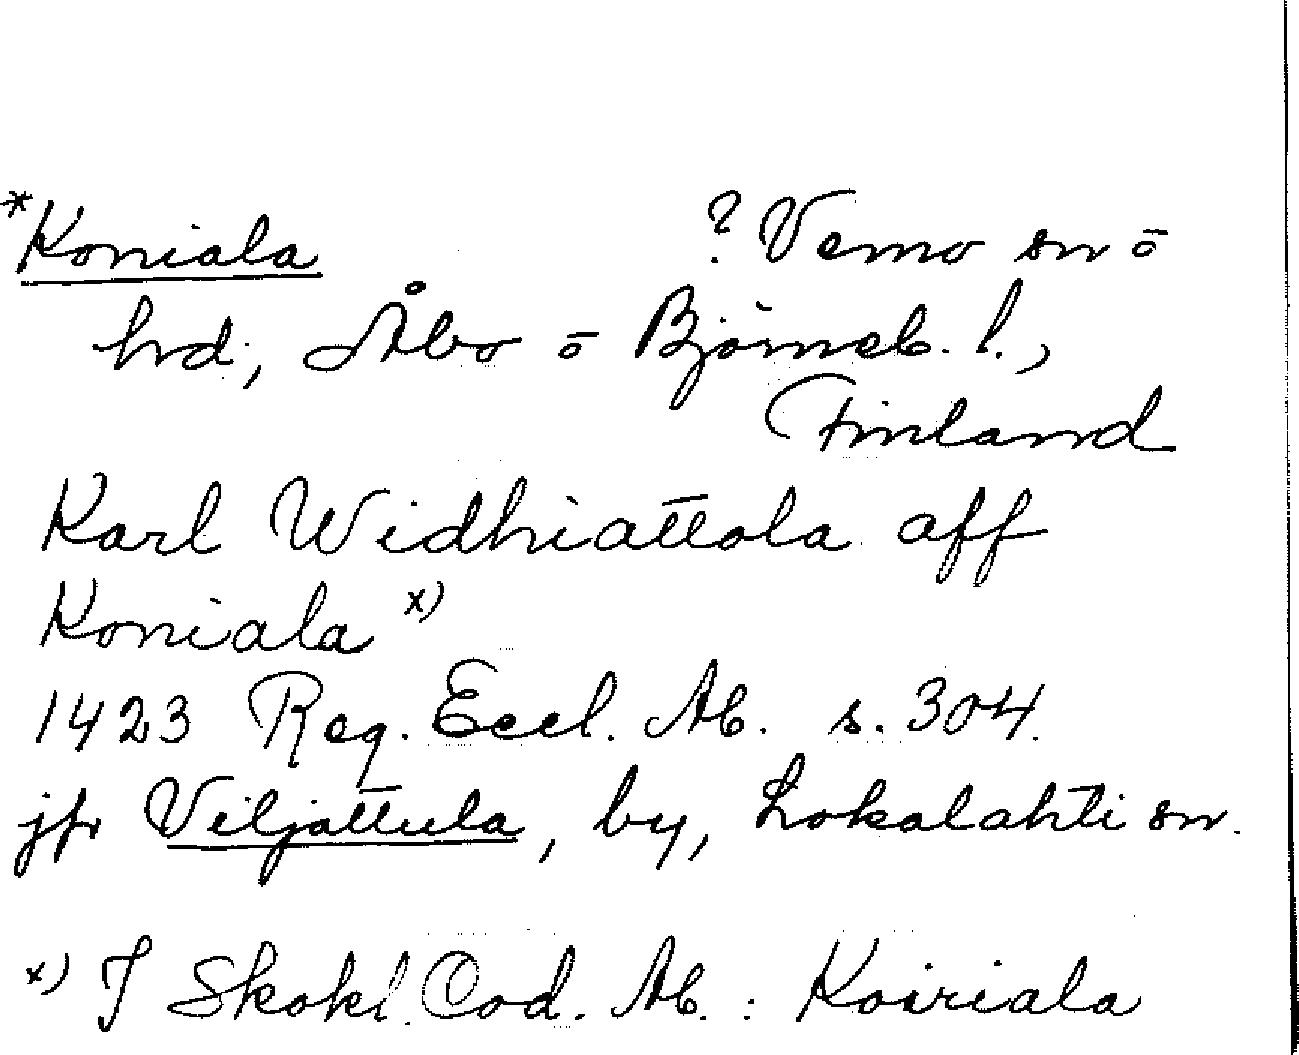 *Koniala ? Vemo sn ō
hrd, Åbo ō Björneb. l.,
Finland
Karl Widhiattola aff
Koniala x)
1423 Reg. Eccl. Ab. s. 304.
jfr Viljattula, by, Lokalahti sn.
x) I Skokl. Cod. Ab. : Koiriala